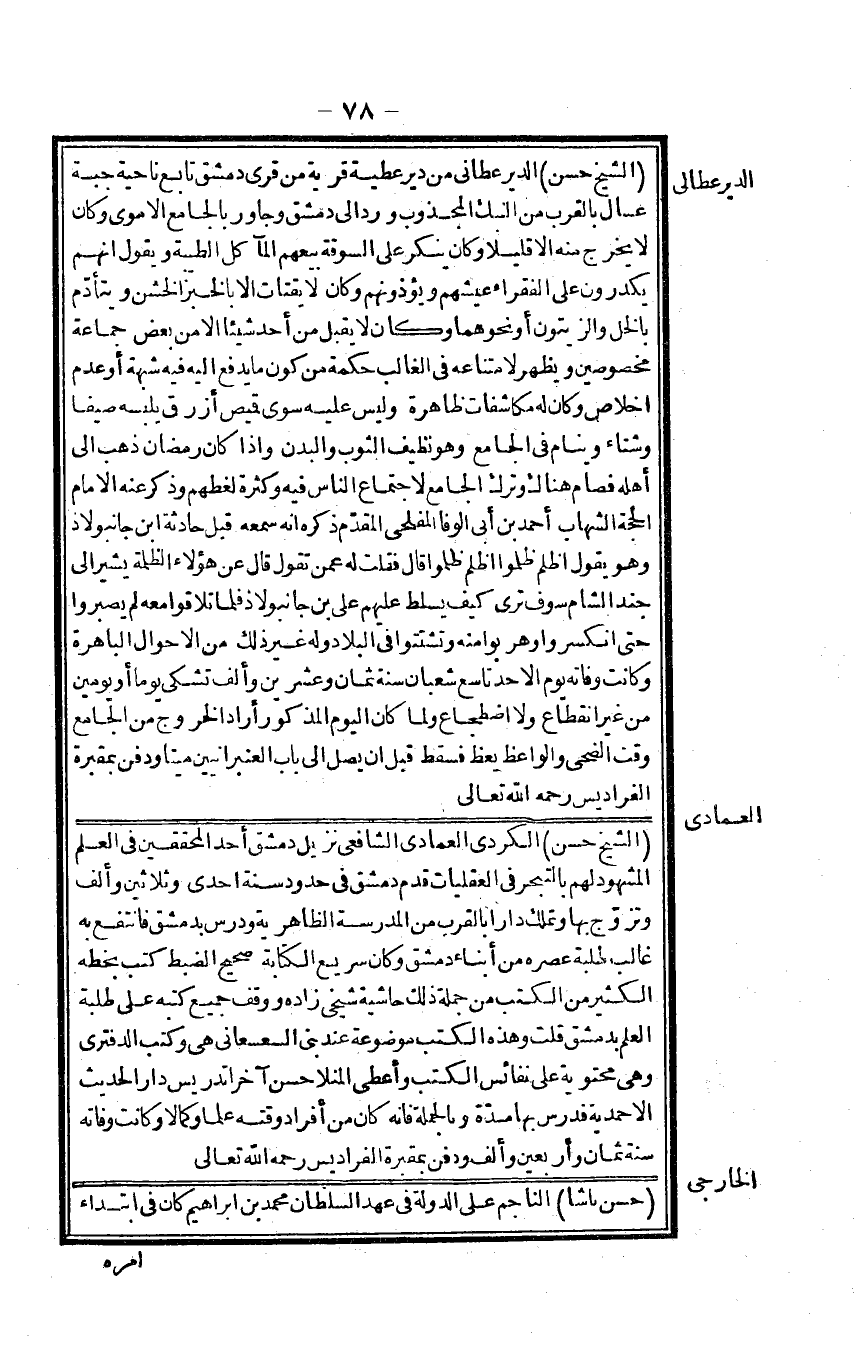 – ٧٨ –
الدير عطانى
(الشيخ حسن) الدير عطانى من دير عطية قرية من قرى دمشق تابع ناحية جبة
عسال بالقرب من النبك المجذوب ورد الى دمشق وجاور بالجامع الاموى وكان
لا يخرج منه الا قليلا وكان ينكر على السوقة بيعهم المآكل الطيبة ويقول انهم
يكدرون على الفقراء عيشهم ويؤذونهم وكان لا يقتات الا بالخبز الخشن ويتأدّم
بالخل والزيتون أونحوهما وكان لا يقبل من أحد شيئا الا من بعض جماعة
مخصوصين ويظهر لامتناعه فى الغالب حكمة من كون ما يدفع اليه فيه شبهة أوعدم
اخلاص وكان له مكاشفات ظاهرة وليس عليه سوى قميص أزرق يلبسه صيفا
وشتاء وينام فى الجامع وهو نظيف الثوب والبدن واذا كان رمضان ذهب الى
أهله فصام هناك وترك الجامع لاجتماع الناس فيه وكثرة لغطهم وذكر عنه الامام
الحجة الشهاب أحمد بن أبى الوفا المفلحى المقدّم ذكره انه سمعه قبل حادثة ابن جانبولاذ
وهو يقول اظلم ظلموا اظلم ظلموا قال فقلت له عمن تقول قال عن هؤلاء الظلمة يشير الى
جند الشام سوف ترى كيف يسلط عليهم على بن جانبولاذ فلما تلاقوا معه لم يصبروا
حتى انكسروا وهربوا منه وتشتتوا فى البلاد وله غير ذلك من الاحوال الباهرة
وكانت وفاته يوم الاحد تاسع شعبان سنة ثمان وعشرين وألف تشكى يوما أو يومين
من غير انقطاع ولا اضطجاع ولما كان اليوم المذكور أراد الخروج من الجامع
وقت الضحى والواعظ يعظ فسقط قبل ان يصل الى باب العنبرانيين ميتا ودفن بمقبرة
الفراديس رحمه الله تعالى
العمادى
(الشيخ حسن) الكردى العمادى الشافعى نزيل دمشق أحد المحققين فى العلم
المشهود لهم بالتبحر فى العقليات قدم دمشق فى حدود سنة احدى وثلاثين وألف
وتزوّج بها وتملك دارا بالقرب من المدرسة الظاهرية ودرس بدمشق فانتفع به
غالب طلبة عصره من أبناء دمشق وكان سريع الكتابة صحيح الضبط كتب بخطه
الكثير من الكتب من جملة ذلك حاشية شيخى زاده ووقف جميع كتبه على طلبة
العلم بدمشق قلت وهذه الكتب موضوعة عند بنى السعسعانى هى وكتب الدفترى
وهى محتوية على نفائس الكتب وأعطى المنلا حسن آخرا تدريس دار الحديث
الاحمدية فدرس بها مدّة وبالجملة فانه كان من أفراد وقته علما وكمالا وكانت وفاته
سنة ثمان وأربعين وألف ودفن بمقبرة الفراديس رحمه الله تعالى
الخارجى
(حسن باشا) الناجم على الدولة فى عهد السلطان محمد بن ابراهيم كان فى ابتداء
امره